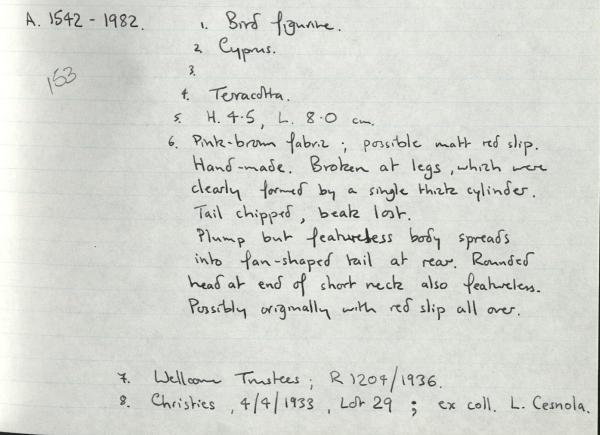 A. 1542 - 1982.
1. Bird figurine.
153
2. Cyprus.
3.
4. Terracotta.
5. H. 4.5, L. 8.0 cm.
6. Pink-brown fabric ; possible matt red slip.
Hand-made. Broken at legs, which were
clearly formed by a single thick cylinder.
Tail chipped, beak lost.
Plump but featureless body spreads
into fan-shaped tail at rear. Rounded
head at end of short neck also featureless.
Possibly originally with red slip all over.
7. Wellcome Trustees ; R 1204/1936.
8. Christies, 4/4/1933, Lot 29 ; ex coll. L. Cesnola.